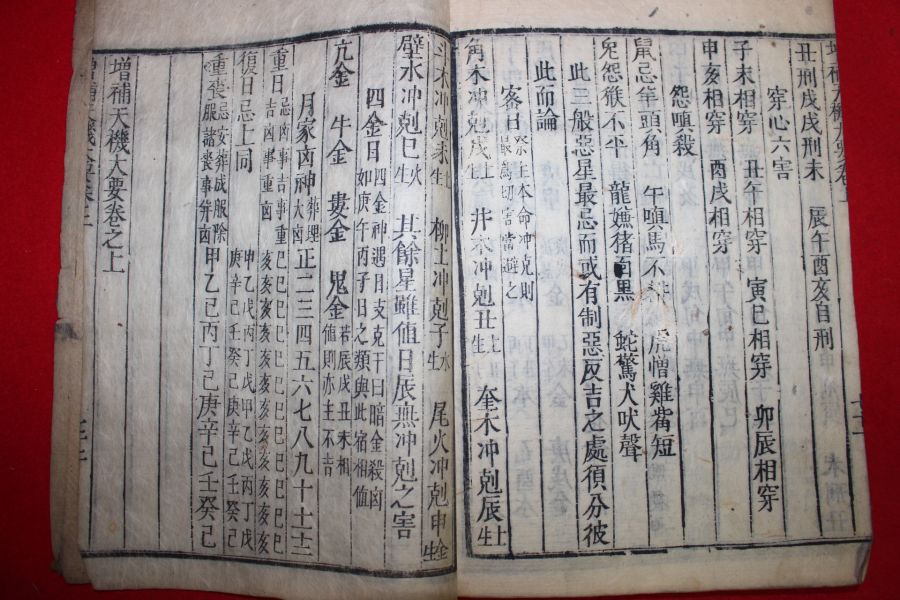 丑刑戌戌刑未 辰午酉亥自刑
穿心六害
子未相穿 丑午相穿 寅巳相穿 卯辰相穿
申亥相穿 酉戌相穿
怨嗔殺
鼠忌羊頭角 午嗔馬不耕 虎憎雞觜短
兔怨猴不平 龍嫌猪面黑 蛇驚犬吠聲
此三般惡星最忌而或有制惡反吉之處須分彼
此而論
客日 祭主本命冲克則最為切害當避之
角木冲剋戌 土生 井木冲剋丑 土生 奎木冲剋辰 土生
斗木冲剋未 土生 柳土冲剋子 水生 尾火冲剋申 金生
壁水冲剋巳 火生 其餘星雖值日辰無冲剋之害
四金日 四金神遇日支克干曰暗金殺凶如庚午丙子日之類與此宿相值
亢金 牛金 婁金 鬼金 若辰戌丑未相值則亦主不吉
月家凶神 葬埋大凶 正二三四五六七八九十十一十二
重日 忌凶事吉事重吉凶事重凶 巳巳巳巳巳巳巳巳巳巳巳巳 亥亥亥亥亥亥亥亥亥亥亥亥
復日 忌上同 甲乙戊丙丁戊甲乙戊丙丁戊 庚辛己壬癸己庚辛己壬癸己
重喪 忌安葬成服除服諸喪事并凶 甲乙己丙丁己庚辛己壬癸己
增補天機大要卷之上